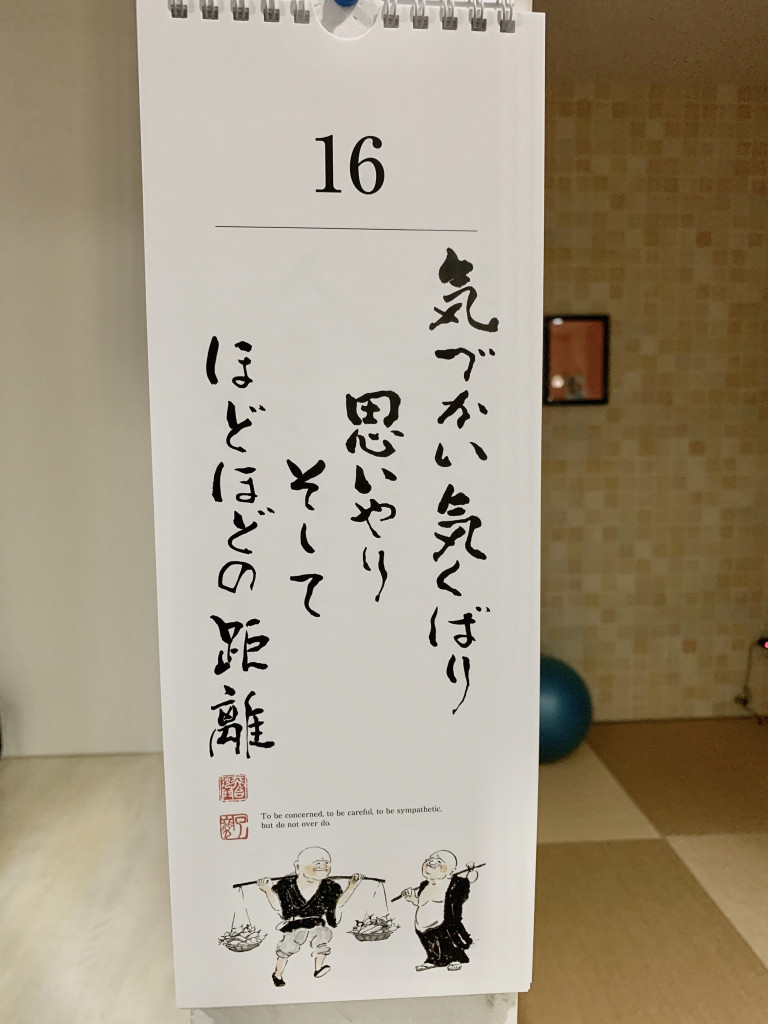 16
気づかい気くばり
思いやり
そして
ほどほどの距離
To be concerned, to be careful, to be sympathetic,
but do not over do.